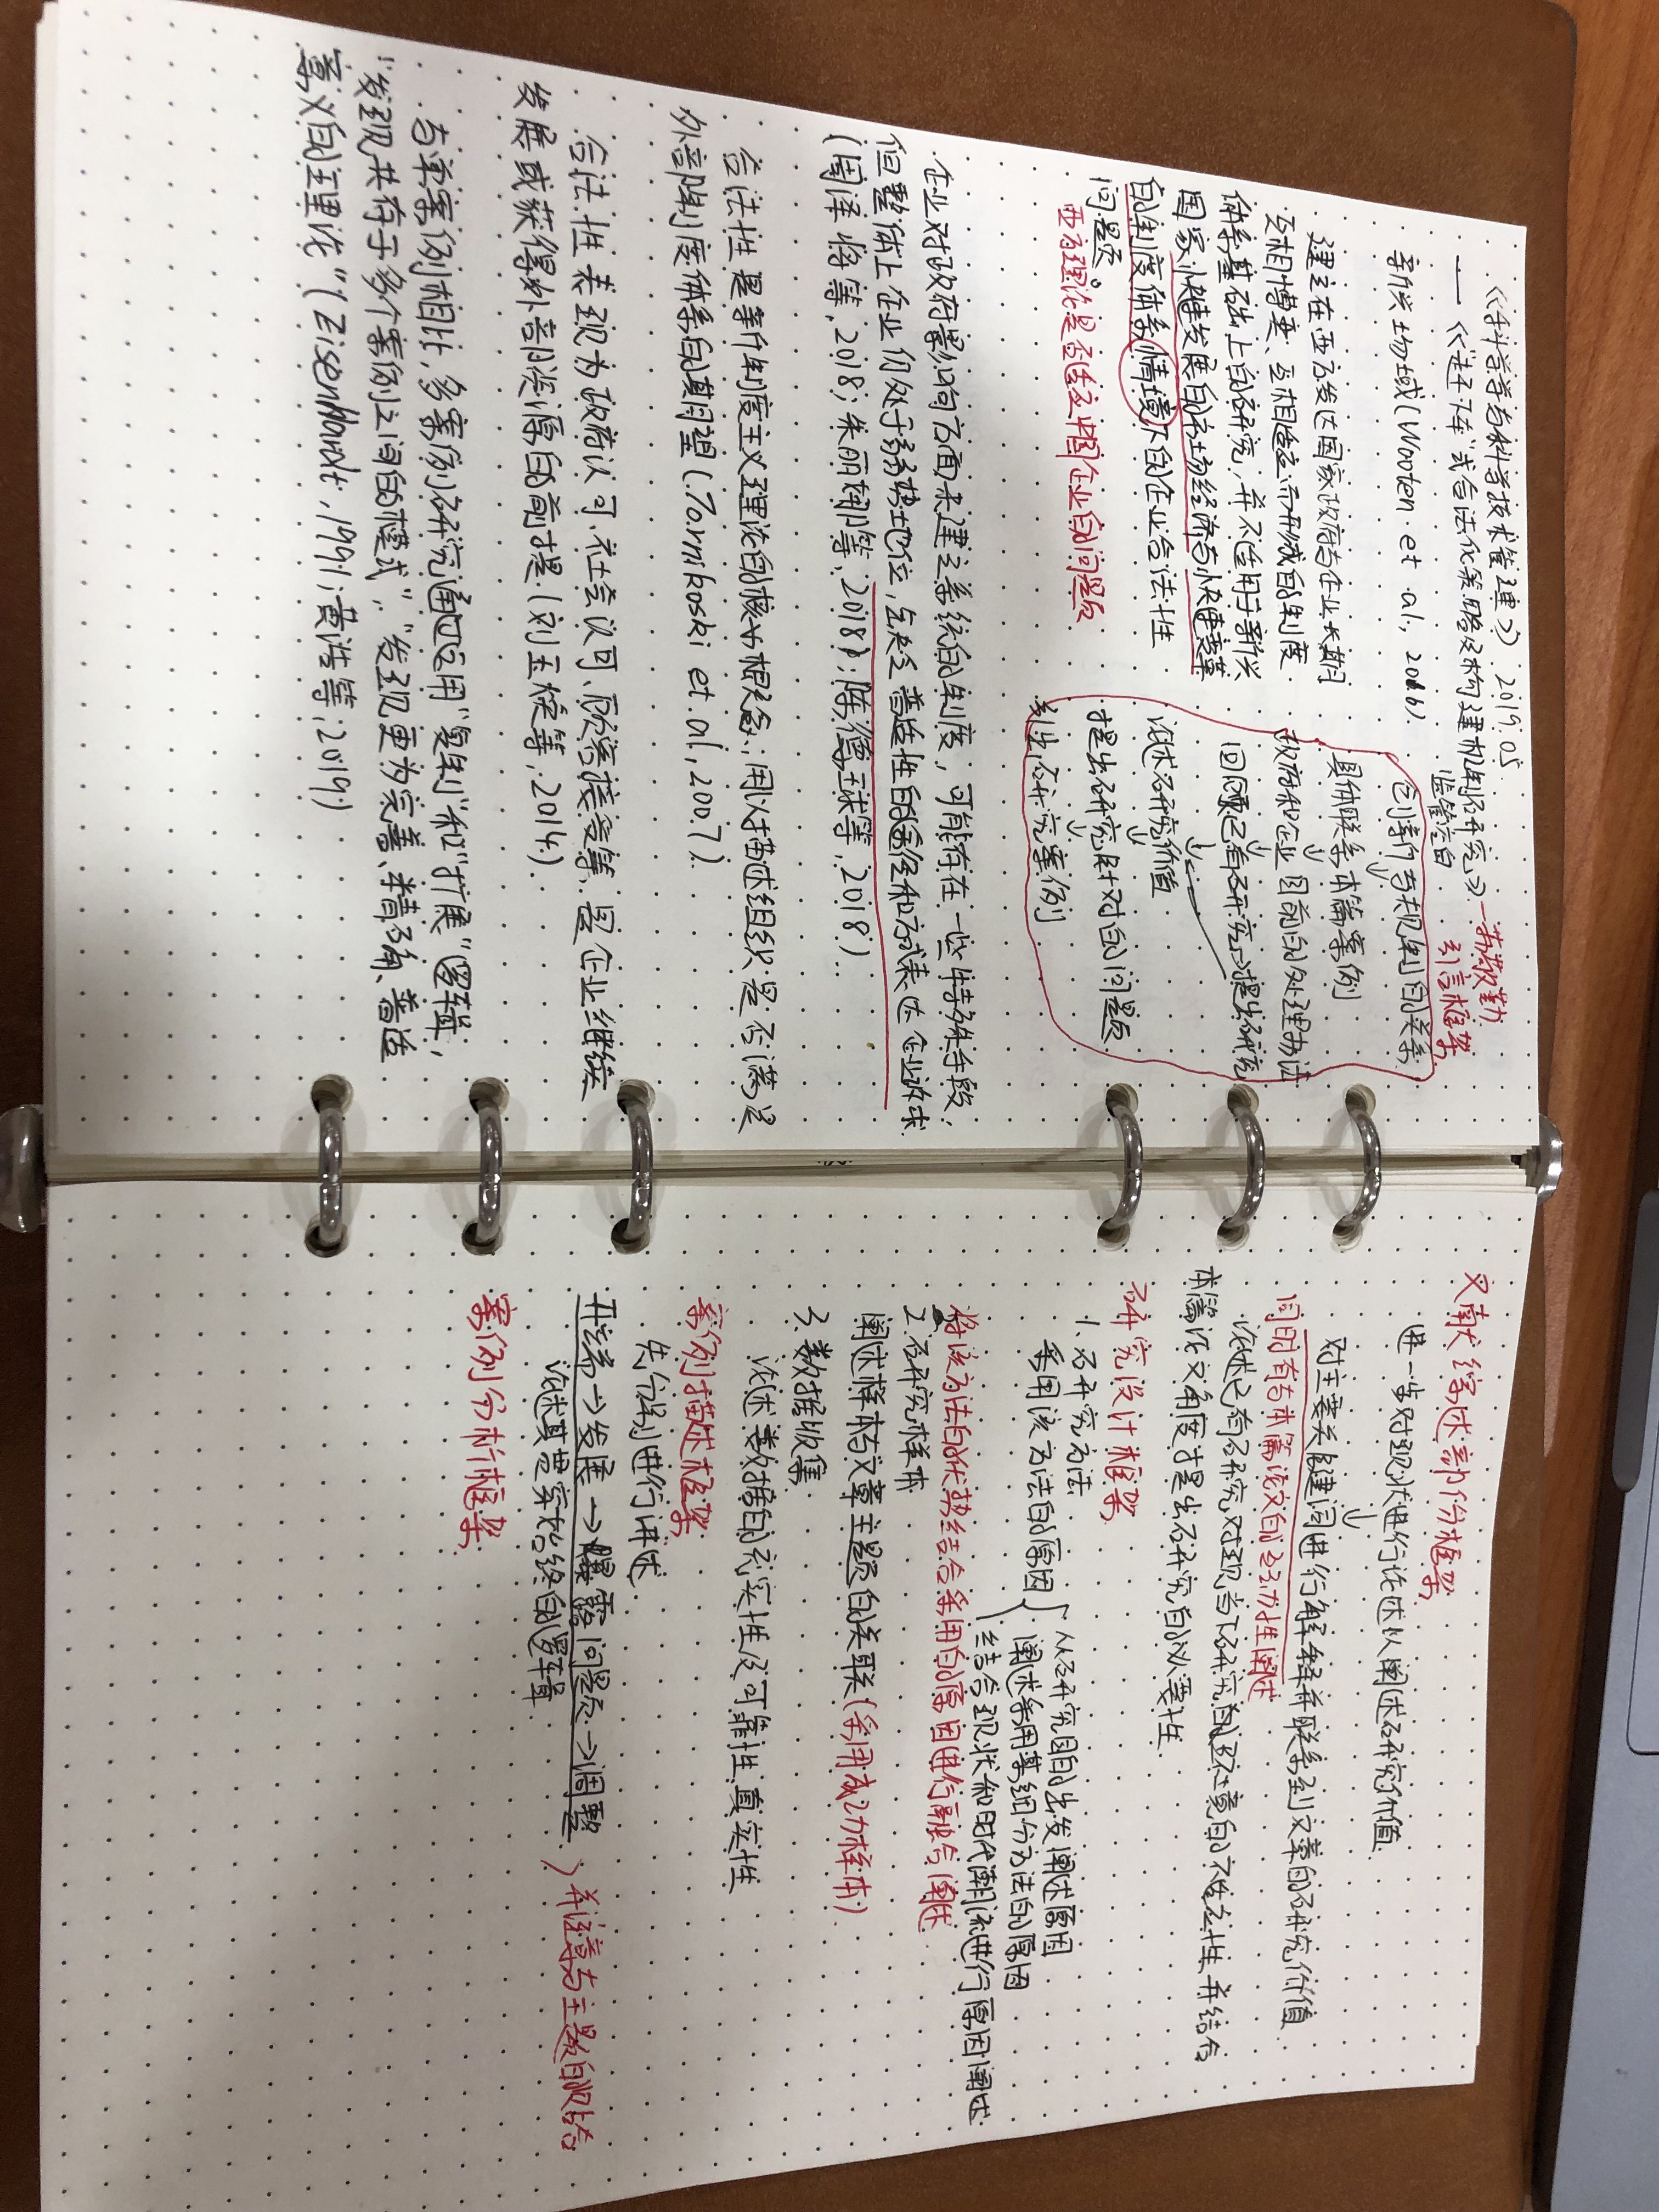 《科学学与科学技术管理》 2019.05
——《"赶下车"式合法化策略及构建机制研究》——苏敬勤
新兴场域(Wooten et al., 2016).
监管空白
引言框架
建立在西方发达国家政府与企业长期
互相博弈、互相适应而形成的制度
体系基础上的研究，并不适用于新兴
国家快速发展的市场经济与快速变革
的制度体系情境下的企业合法性
问题。
西方理论是否适应中国企业的问题
创新与规制的关系
↓
具体联系本篇案例
↓
政府和企业目前的处理办法
↓
回顾已有研究→提出研究
↓
论述研究价值
↓
提出研究针对的问题
↓
引出研究案例
企业对政府影响方面未建立系统的制度，可能存在一些特殊手段，
但整体上企业仍处于弱势地位，且缺乏普适性的途径和方式表达企业诉求
(周泽将等, 2018; 朱丽娜等, 2018; 陈德球等, 2018)
合法性是新制度主义理论的核心概念，用以描述组织是否满足
外部制度体系的期望(Tornikoski et al, 2007).
合法性表现为政府认可、社会认可、顾客接受等，是企业继续
发展或获得外部资源的前提(刘玉焕等, 2014)
与单案例相比，多案例研究通过运用"复制"和"扩展"逻辑，
"发现共存于多个案例之间的模式"，"发现更为完善、精确、普适
意义的理论"(Eisenhardt, 1991; 黄浩等, 2019)
文献综述部份框架
进一步对现状进行论述从阐述研究价值
↓
对主要关键词进行解释并联系到文章的研究价值
同时有与本篇论文的适切性阐述
论述已有研究对现当下研究的环境的不适应性并结合
本篇论文角度提出研究的必要性
研究设计框架
1. 研究方法
采用该方法的原因
从研究目的出发阐述原因
阐述采用某细分方法的原因
结合现状和时代潮流进行原因阐述
将该方法的优势结合采用的原因进行融合阐述
2. 研究样本
阐述样本与文章主题的关联(采用成功样本)
3. 数据收集
论述数据的充实性及可靠性真实性
案例描述框架
先分别进行讲述
开端→发展→暴露问题→调整
论述其贯穿始终的逻辑
并注意与主题的贴合
案例分析框架